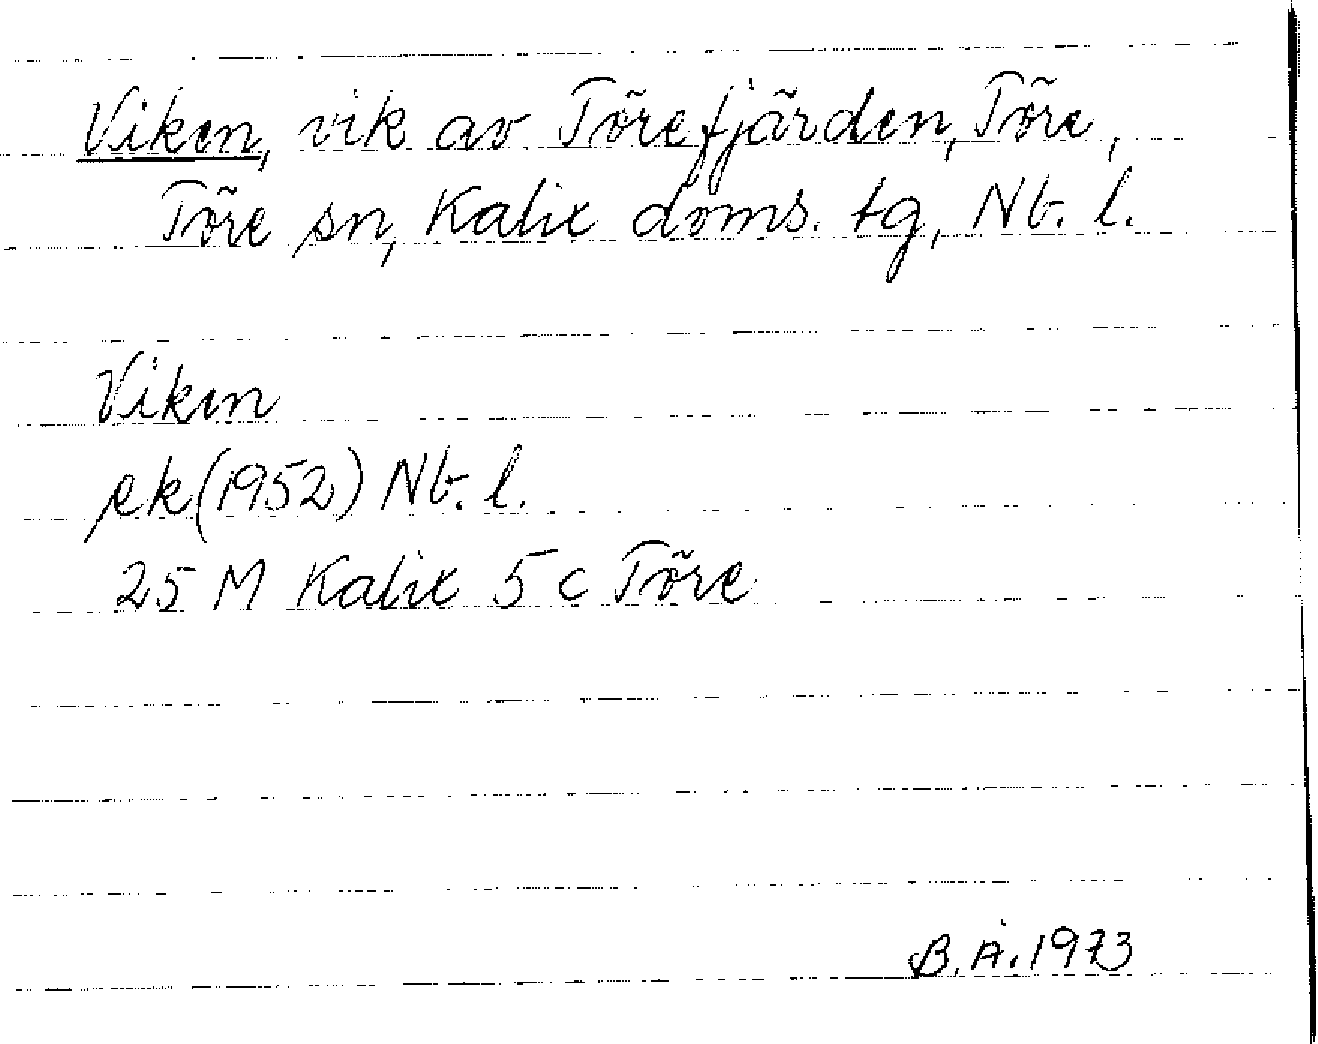 Viken, vik av Törefjärden, Töre,
Töre sn, Kalix doms. tg, Nb. l.
Viken
ek (1952) Nb. l.
25 M Kalix 5 c Töre
B.Å. 1973